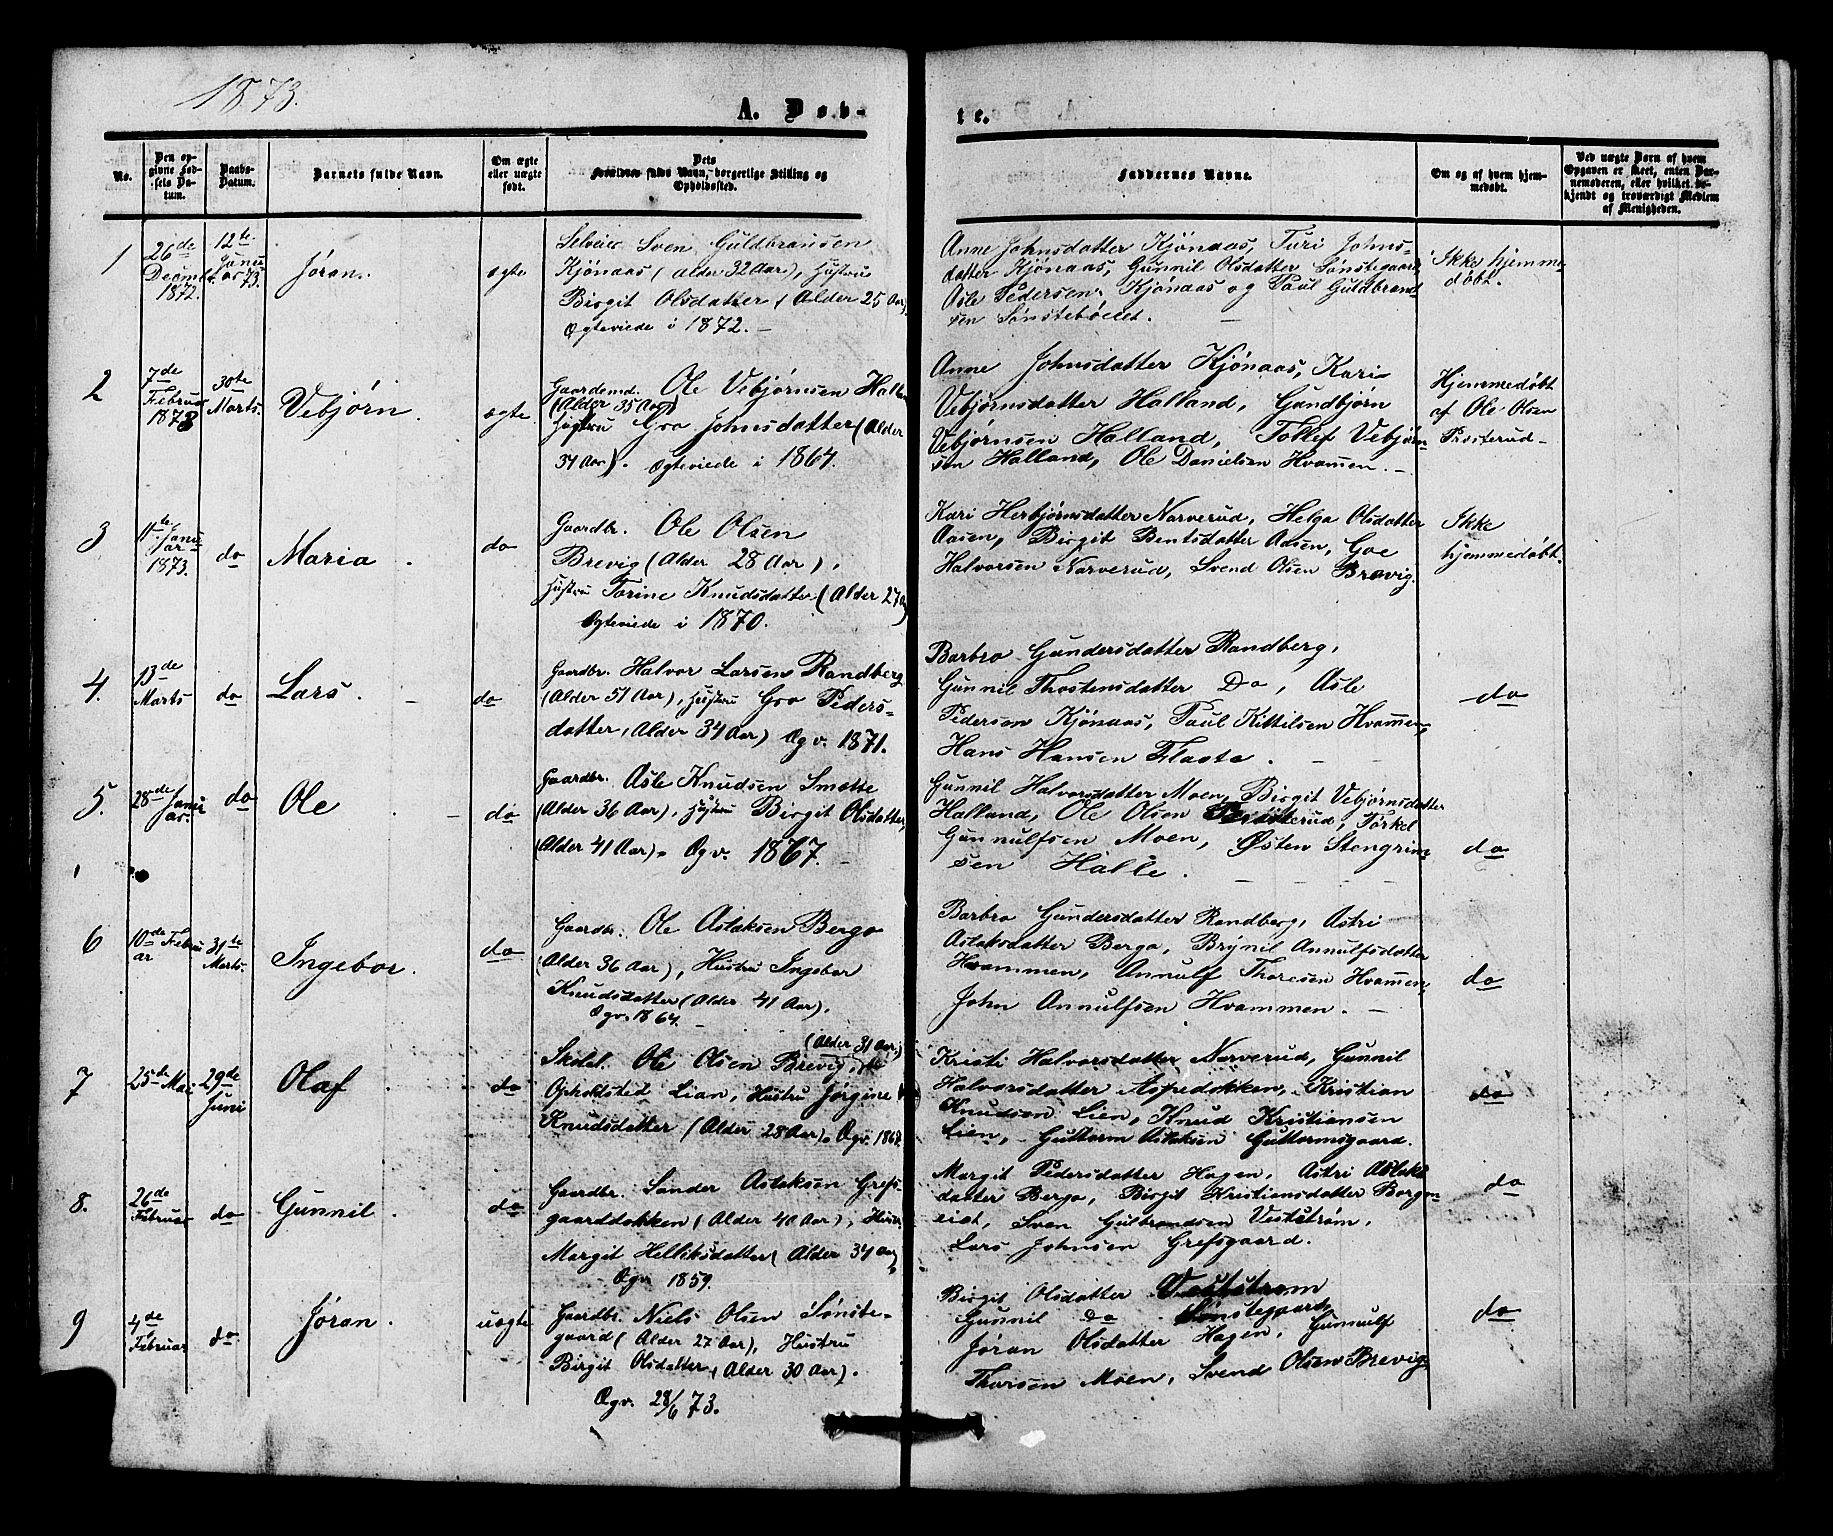 1873.
A. Døb-
te.
No.
Den op-
givne Fød-
sels Da-
tum.
Daabs-
Datum.
Barnets fulde Navn.
Om ægte
eller uægte
født.
Dets
Forældres fulde Navn, borgerlige Stilling og
Opholdssted.
Faddernes Navne.
Om og af hvem hjem-
medøbt.
Ved uægte Børn af hvem
Opgaven er skeet, enten Bar-
nemoderen, eller hvilket be-
kjendt og troværdigt Medlem
af Menigheden.
1
26de
Decembr.
1872.
12te
Janu
ar 73.
Jøran.
ægte
Selveier Sven Guldbransen
Kjönaas (alder 32 Aar), Hustru
Birgit Olsdatter (Alder 25 Aar).
Ægteviede i 1872. –
Anne Johnsdatter Kjönaas, Turi Johns-
datter Kjönaas, Gunnil Olsdatter Sönstegaard,
Asle Pedersen Kjönaas og Paul Guldbrand-
sen Sönsteböeltet. –
Ikke hjemme-
döbt.
2
7de
Februar
1873
30te
Marts.
Vebjørn.
ægte
Gaardmd. Ole Vebjørnsen Halland
(Alder 35 Aar)
Hustru Gro Johnsdatter (Alder
34 Aar). Ægteviede i 1864.
Anne Johnsdatter Kjönaas, Kari
Vebjørnsdatter Halland, Gundbjørn
Vebjørnsen Halland, Tollef Vebjørn-
sen Halland, Ole Danielsen Hvamen. –
Hjemmedøbt
af Ole Olsen
Prosterud –
3
11te Janu
ar
1873.
do
Maria.
do
Gaardbr. Ole Olsen
Brevig (Alder 28 Aar),
Hustru Torine Knudsdatter (Alder 27 Aar)
Ægteviede i 1870.
Kari Herbjørnsdatter Narverud, Helga Olsdatter
Aasen, Birgit Bentsdatter Aasen, Goe
Halvorsen Narverud, Svend Olsen Brevig.
Ikke
hjemmedøbt.
4.
13de
Marts
do
Lars. –
do
Gaardbr. Halvor Larsen Randberg
(Alder 51 Aar), Hustru Gro Peders-
datter, Alder 34 Aar) Ægv. 1871.
Barbro Gundersdatter Randberg,
Gunnil Thostensdatter Do, Asle
Pedersen Kjönaas, Paul Kittilsen Hvamen,
Hans Hansen Flaata. – –
do
5.
28de Janu
ar.
do
Ole. –
do
Gaardbr. Asle Knudsen Smette
(Alder 36 Aar), Hustru Birgit Olsdatter,
(Alder 41 Aar). Ægv. 1867. –
Gunnil Halvorsdatter Moen, Birgit Vebjørnsdatter
Halland, Ole Olsen Prosterud, Torkel
Gunnulfsen Moen, Østen Stengrim-
sen Halle. – – –
do
6
10de Febru
ar
31te
Marts.
Ingebor.
do
Gaardbr. Ole Aslaksen Bergo
(Alder 36 Aar), Hustru Ingebor
Knudsdatter (Alder 41 Aar),
Ægv. 1864. –
Barbro Gundersdatter Randberg, Astri
Aslaksdatter Bergo, Brynil Annulfsdatter
Hvammen, Annulf Thoresen Hvamen,
John Annulfsen Hvammen. –
do
7
25de Mai
29de
Juni
Olaf.
do
(Alder 31 Aar)
Skolel. Ole Olsen Brevig,
Opholdsted Lian, Hustru Jørgine
Knudsdatter (Alder 28 Aar). Ægv. 186
Kristi Halvorsdatter Narverud, Gunnil
Halvorsdatter Aspedokken, Kristian
Knudsen Lien, Knud Kristiansen
Lien, – Guttorm Aslaksen Guttormsgaard.
do
8.
26de
Februar
do
Gunnil.
do
Gaardbr. Sander Aslaksen Grefs-
gaarddokken (Alder 40 Aar), Hustru
Margit Helliksdatter (Alder 34 Aar),
Ægv. 1859.
Margit Pedersdatter Hagen, Astri Aslaks
datter Bergo, Birgit Kristiansdatter Borgen
eiet, Sven Gulbrandsen Veststrøm,
Lars Johnsen Grefsgaard.
do
9
4de
Februar
do
Jøran.
uægte
Gaardbr. Niels Olsen Sönste-
gaard (Alder 27 Aar), Hustru
Birgit Olsdatter (Alder 30 Aar).
Ægv. 28/6 73.
Birgit Olsdatter Veststrøm
Gunnil Do Sönstegaard,
Jøran Olsdatter Hagen, Gunnulf
Thorsen Moen, Svend Olsen Brevig.
do